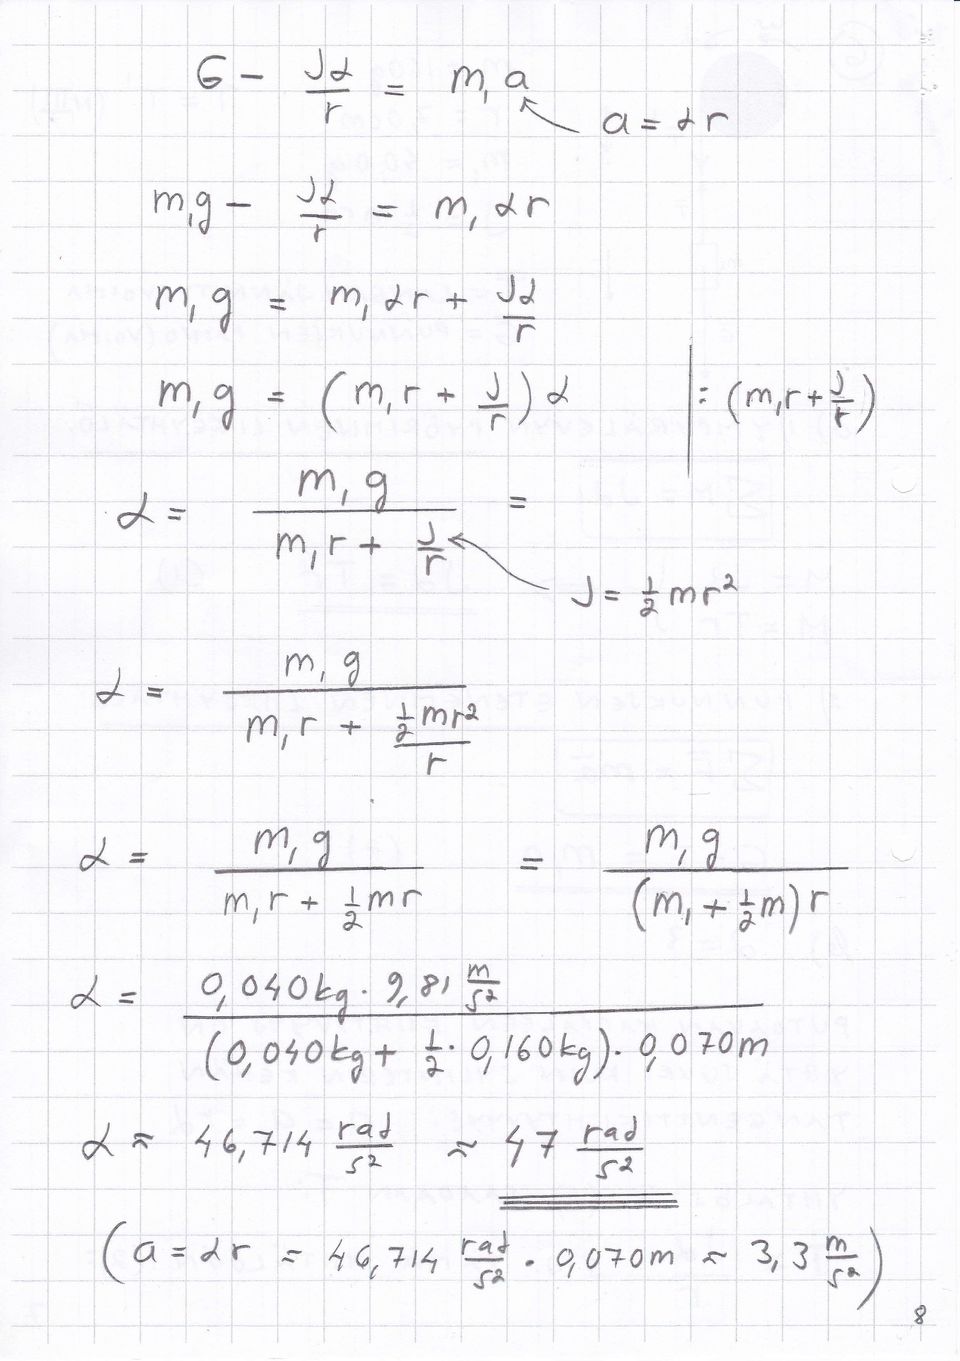 G - Jα/r = m₁a
a = αr
m₁g - Jα/r = m₁αr
m₁g = m₁αr + Jα/r
m₁g = (m₁r + J/r)α |:(m₁r + J/r)
α = m₁g / (m₁r + J/r) =
J = ½mr²
α = m₁g / (m₁r + ½mr²/r)
α = m₁g / (m₁r + ½mr) = m₁g / ((m₁ + ½m)r)
α = 0,040kg · 9,81 m/s² / ((0,040kg + ½ · 0,160kg) · 0,070m)
α ≈ 46,714 rad/s² ≈ 47 rad/s²
(a = αr = 46,714 rad/s² · 0,070m ≈ 3,3 m/s²)
8